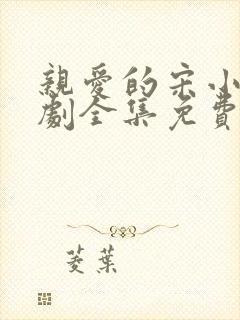 親愛的宋小
劇全集免費
菱葉